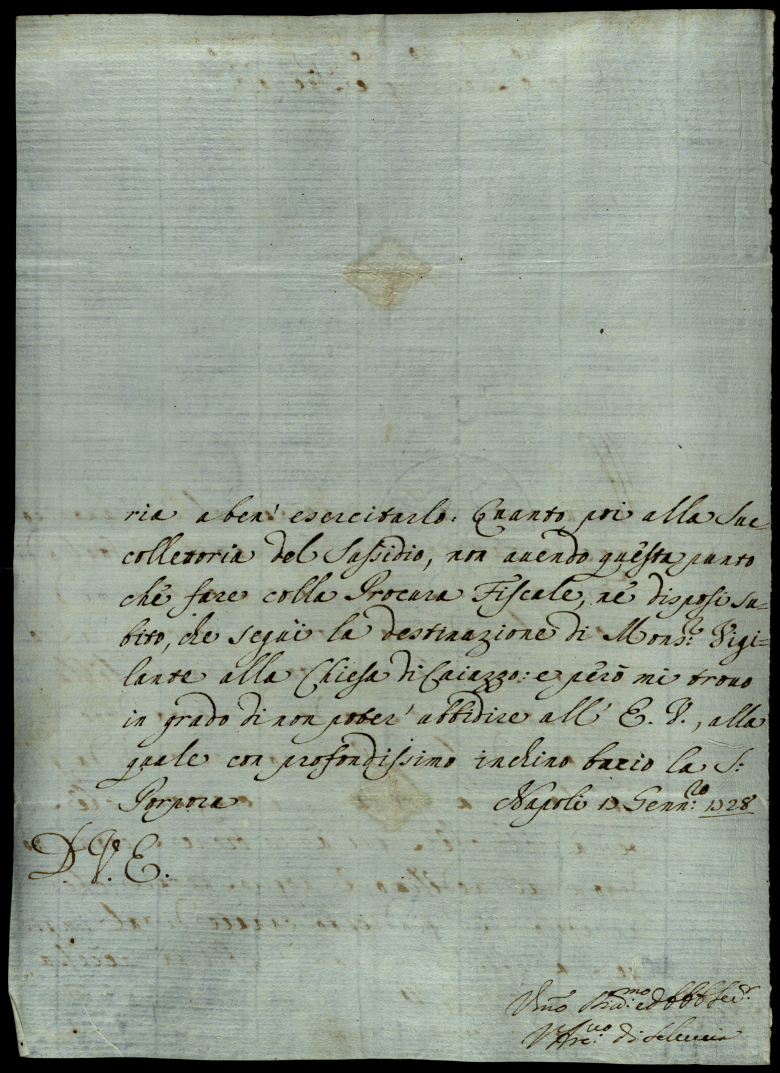 ria a ben' esercitarlo. Quanto poi alla Suc=
collettoria del Sussidio, non auendo questa punto
che fare colla Procura Fiscale, nè disposi su=
bito, che seguì la destinazione di Mons.r Vigi=
lante alla Chiesa di Caiazzo: e però mi trouo
in grado di non poter' ubbidire all' E. V., alla
quale con profondissimo inchino bacio la S:
Porpora Napoli 13 Genn.ro 1728
D. V. E.
di Seleucia